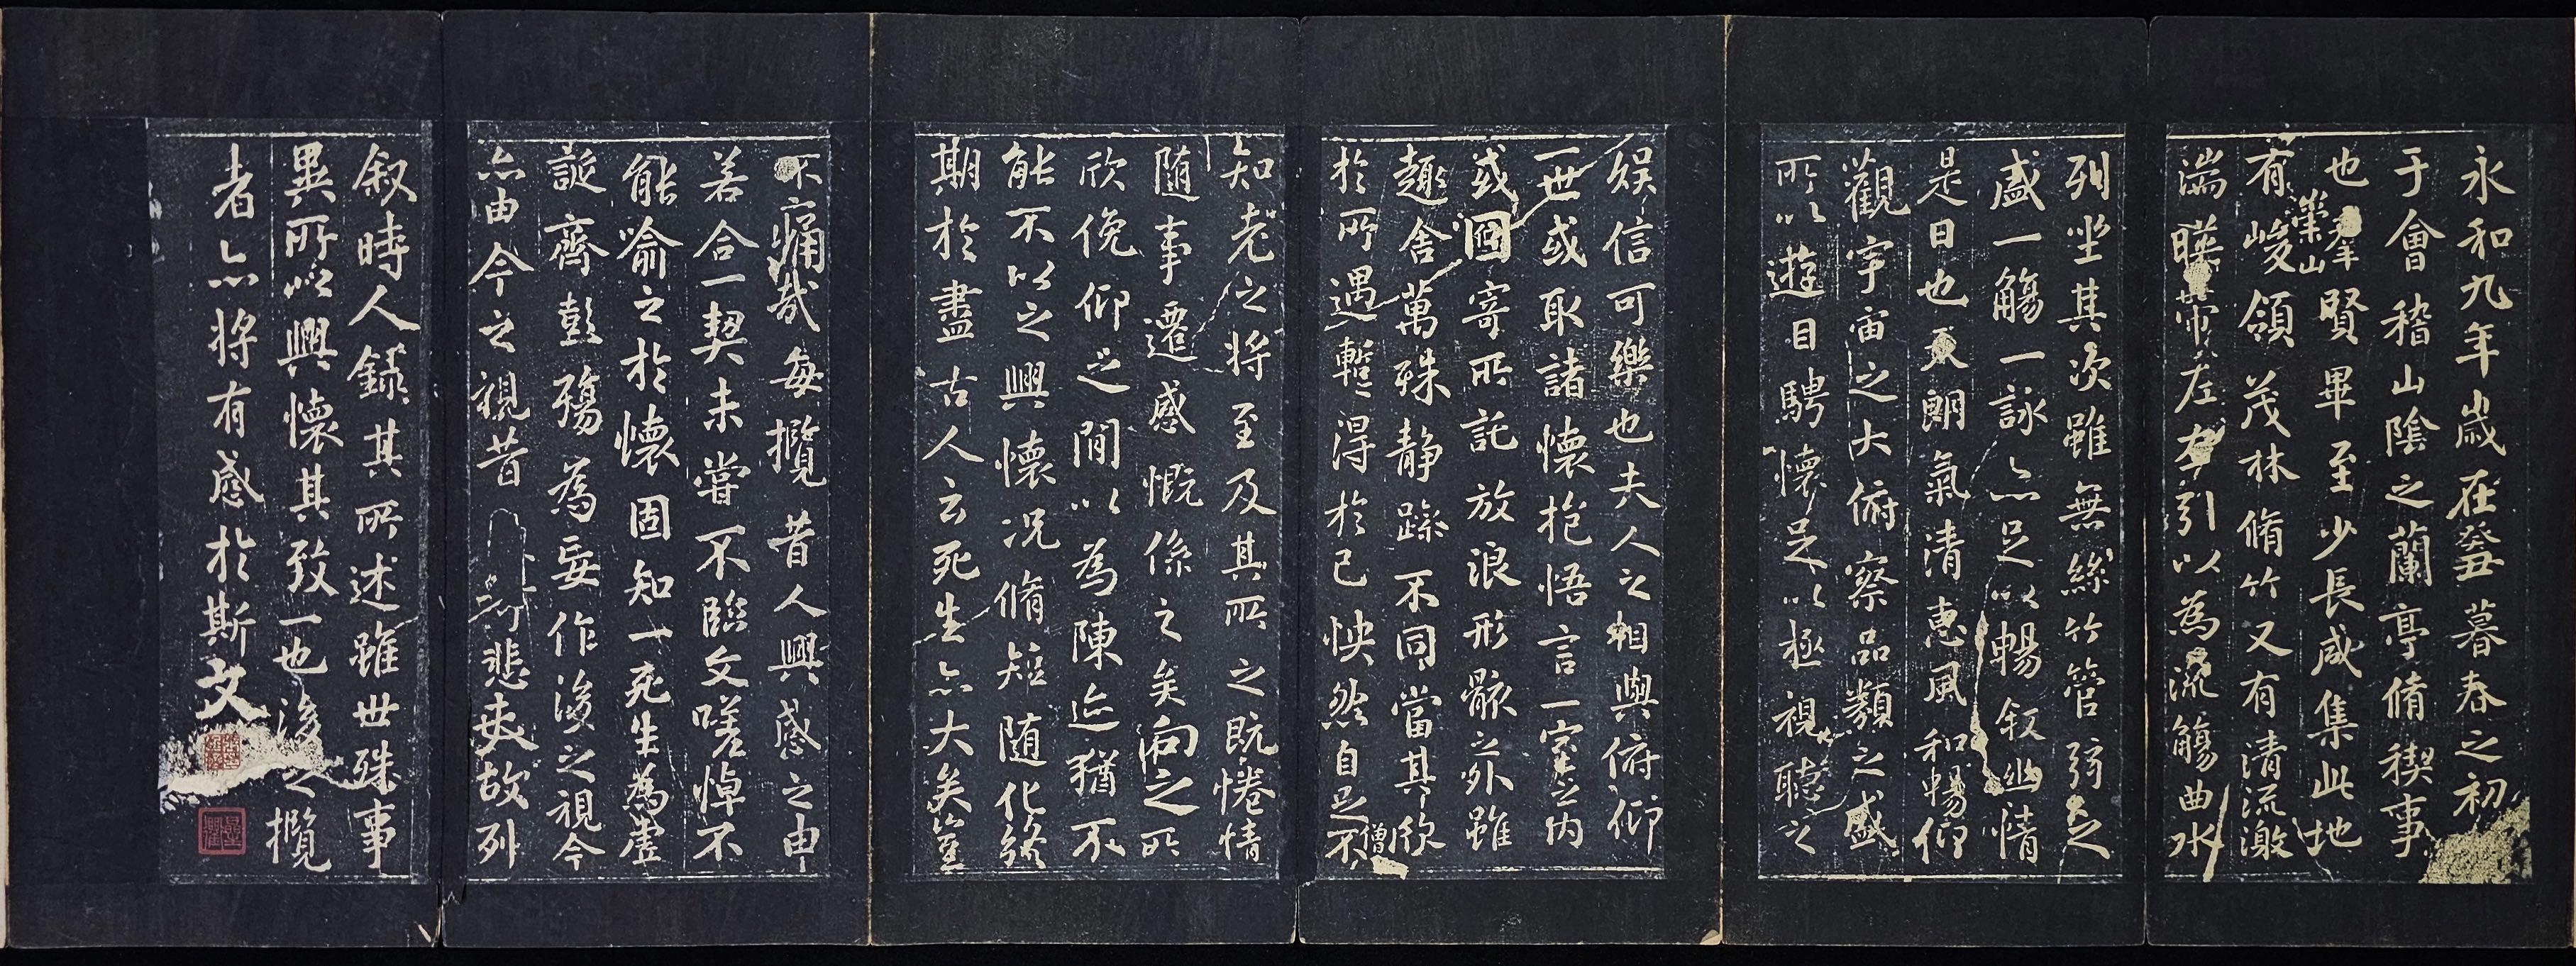 永和九年歲在癸丑暮春之初
于會稽山陰之蘭亭脩稧事
也羣賢畢至少長咸集此地
崇山
有峻領茂林脩竹又有清流激
湍暎帶左右引以為流觴曲水
列坐其次雖無絲竹管弦之
盛一觴一詠亦足以暢叙幽情
是日也天朗氣清惠風和暢仰
觀宇宙之大俯察品類之盛
所以遊目騁懷足以極視聽之
娛信可樂也夫人之相與俯仰
一世或取諸懷抱悟言一室之内
或因寄所託放浪形骸之外雖
趣舍萬殊静躁不同當其欣
僧
於所遇暫得於己怏然自足不
知老之將至及其所之既惓情
隨事遷感慨係之矣向之所
欣俛仰之閒以為陳迹猶不
能不以之興懷况脩短隨化終
期於盡古人云死生亦大矣豈
不痛哉每攬昔人興感之由
若合一契未嘗不臨文嗟悼不
能喻之於懷固知一死生為虛
誕齊彭殤為妄作後之視今
亦由今之視昔悲夫故列
叙時人錄其所述雖世殊事
異所以興懷其致一也後之攬
者亦將有感於斯文